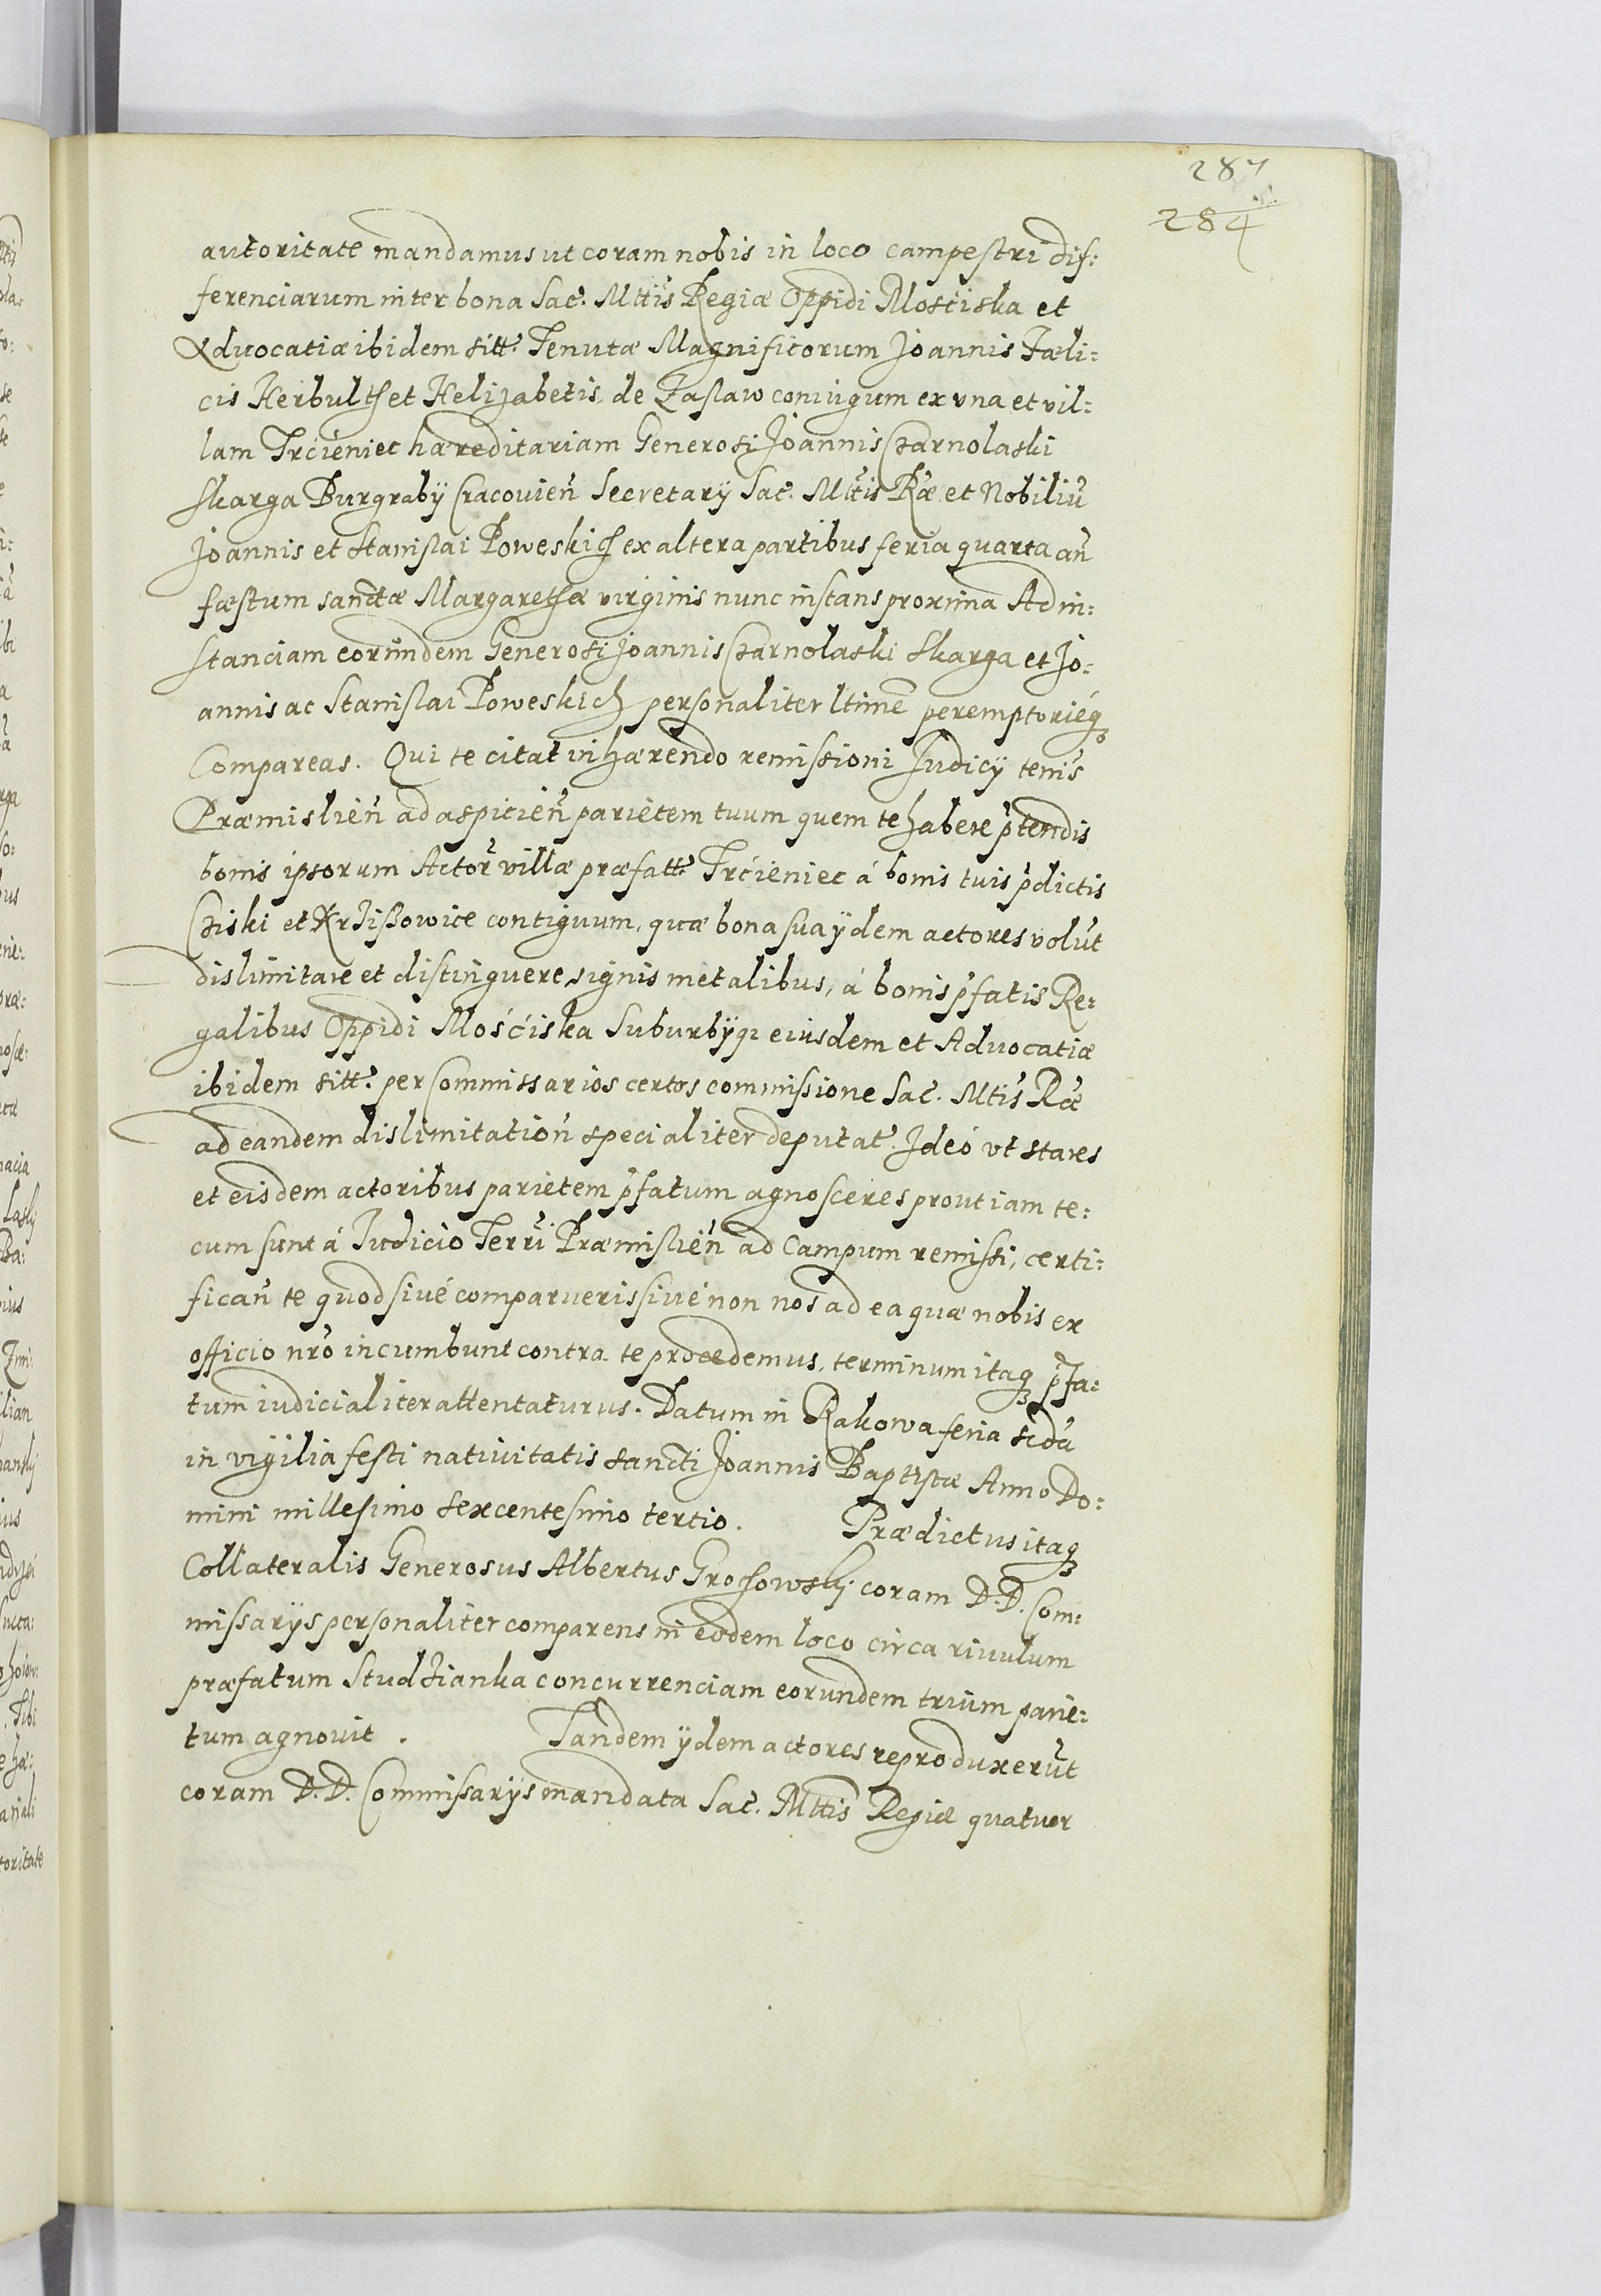 287
284
autoritate mandamus ut coram nobis in loco campestri dif:
ferenciarum inter bona Sac. Mttis Regiæ Oppidi Mosciska et
Advocatiæ ibidem sitt. Tenutæ Magnificorum Joannis Fæli:
cis Herbulth et Helizabetis de Zaslaw coniugum ex vna et vil:
lam Trcieniec hæreditariam Generosi Joannis Czarnolaski
Skarga Burgrabÿ Cracovień Secretarÿ Sac. Mttis Ræ et Nobiliū
Joannis et Stanislai Poweskich ex altera partibus feria quarta añ
fæstum sanctæ Margarethæ virginis nunc instans proxima Ad in:
stanciam eorundem Generosi Joannis Czarnolaski Skarga et Jo:
annis ac Stanislai Poweskich personaliter ltime peremptorieq
Compareas. Qui te citat inhærendo remissioni Judicÿ terris
Præmislień ad aspicień parietem tuum quem te habere ptendis
bonis ipsorum Actor villæ præfatt. Trcieniec á bonis tuis pdictis
Cziski et Krzissowice contiguum, quæ bona sua ÿdem actores volut
dislimitare et distinguere signis metalibus, á bonis pfatis Re:
galibus Oppidi Mościska Suburbÿqz eiusdem et Advocatiæ
ibidem sitt. per Commissarios certos commissione Sac. Mttis Ræ
ad eandem dislimitationń specialiter deputat. Ideó vt stares
et eisdem actoribus parietem pfatum agnosceres prout iam te:
cum sunt á Judicio Terri Præmislień ad Campum remissi, certi:
ficañ te quod sivé comparueris sivé non nos ad ea quæ nobis ex
officio nrō incumbunt contra te procedemus, terminum itaq pfa:
tum iudicialiter attentaturus. Datum in Rakowa feria scda
in vigilia festi nativitatis sancti Joannis Baptistæ Anno Do:
mini millesimo sexcentesimo tertio. Prædictus itaq
Collateralis Generosus Albertus Grochowskj coram D. D. Com:
missarÿs personaliter comparens in eodem loco circa rivulum
præfatum Studzianka concurrenciam eorundem trium parie:
tum agnovit. Tandem ÿdem actores reproduxerūt
coram D. D. Commissarÿs mandata Sac. Mttis Regiæ quatuor